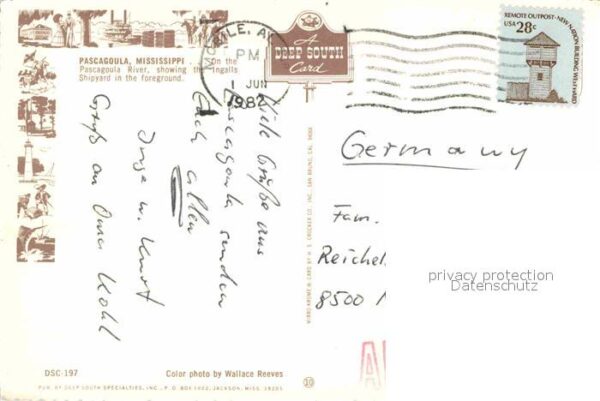 PASCAGOULA, MISSISSIPPI . . . On the
Pascagoula River, showing the Ingalls
Shipyard in the foreground.
A
DEEP SOUTH
Card
MOBILE, AL
PM
JUN
1982
REMOTE OUTPOST-NEW NATION BUILDING WESTWARD
USA 28c
Viele Grüße aus
Pascagoula senden
Euch allen
Inge u. Kurt
Gruß an Oma Kohl
Germany
Fam.
Reichel
8500
privacy protection
Datenschutz
DSC-197
Color photo by Wallace Reeves
PUB. BY DEEP SOUTH SPECIALTIES, INC., P.O. BOX JACKSON, MISS.
CARD BY H. S. CROCKER CO. INC., SAN BRUNO, CAL.